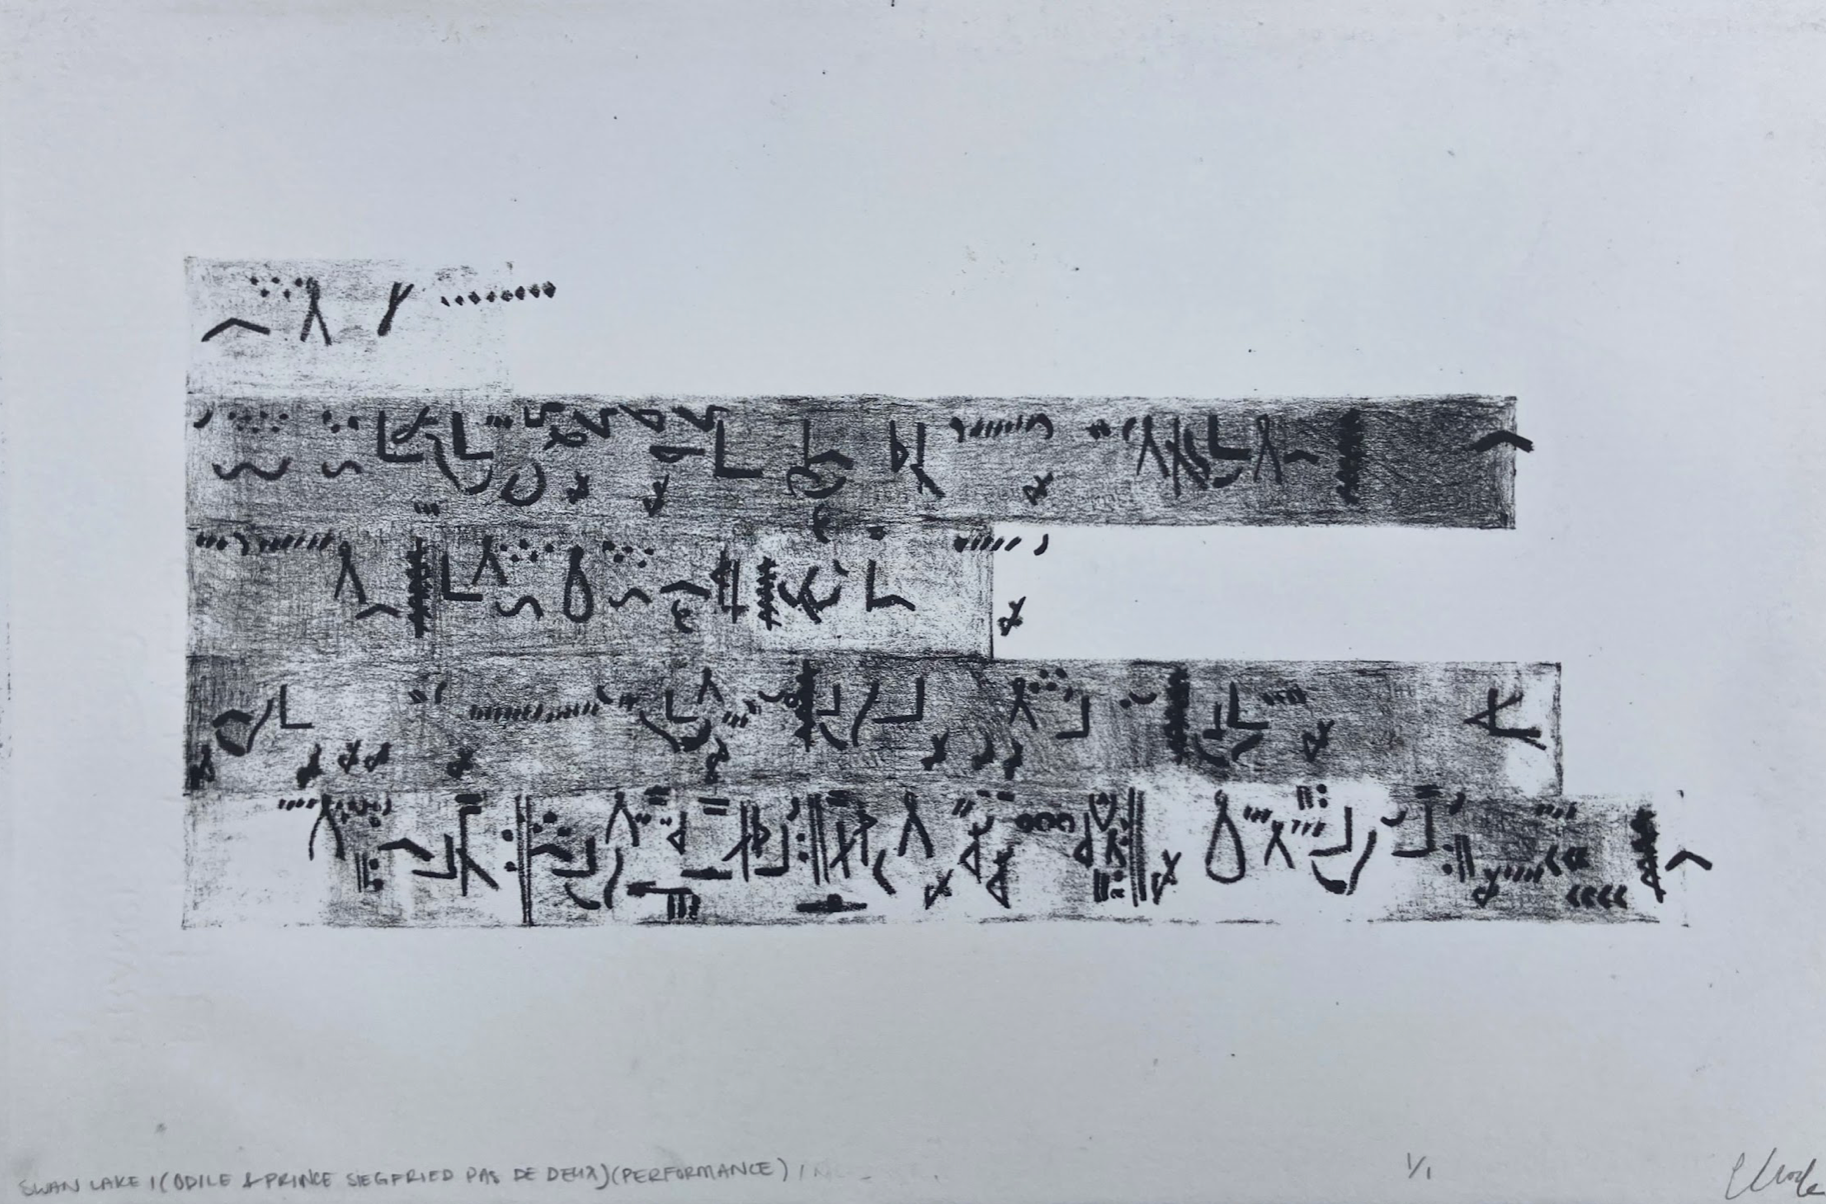 SWAN LAKE 1 (ODILE & PRINCE SIEGFRIED PAS DE DEUX) (PERFORMANCE) 1/1